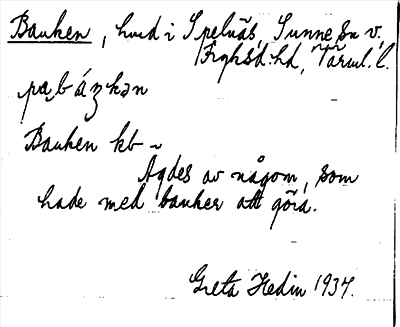 Bauken, hmd i Spelnäs, Sunne sn v.,
Fryksd. hd, Värml. l.
pa bázkən
Bauken kb ~
Ägdes av någon, som
hade med bauker att göra.
Greta Hedin 1937.